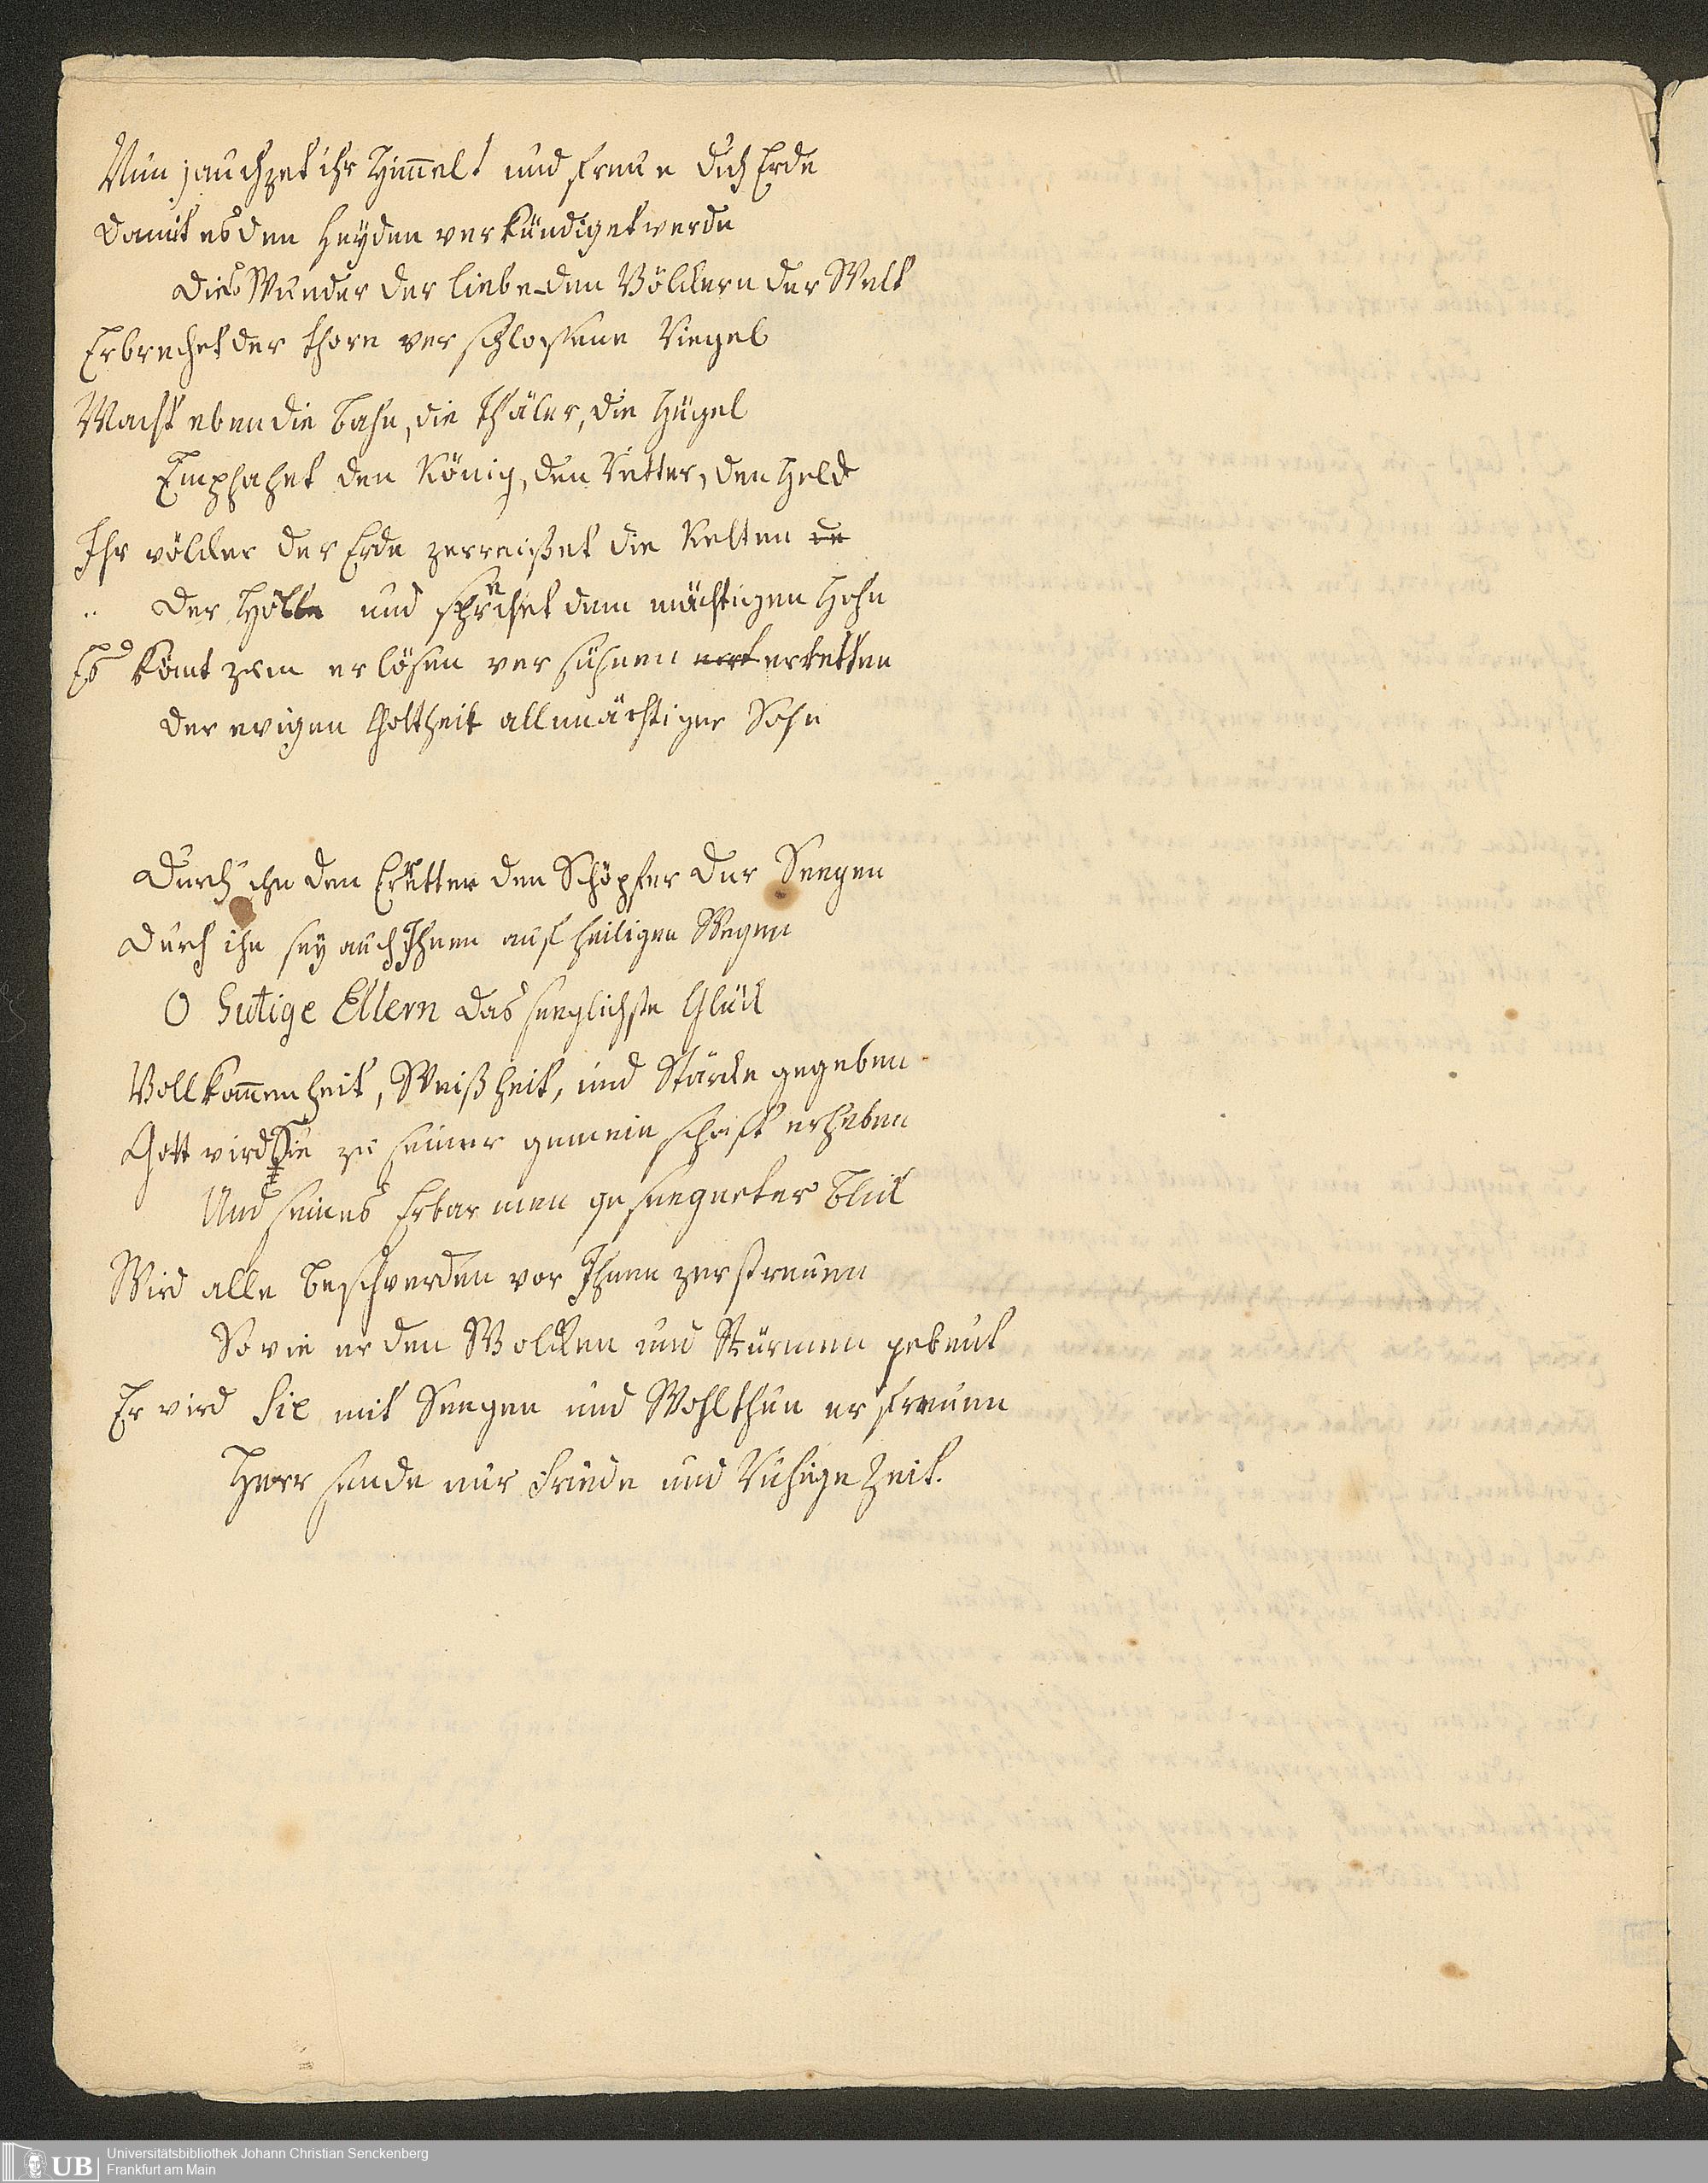 Nun jauchzet ihr Himmel! und freue dich Erde
damit es den Heyden verkündiget werde
dies Wunder der liebe den Völckern der Welt
Erbrechet der Thore verschlossene Riegel
Macht eben die Bahn, die Thäler, die Hügel
Empfahet den König, den Retter, den Held
Ihr völcker der Erde zerreisset die Ketten de
der Hölle und sprechet dem mächtigen Hohn
Es kömt zum erlösen versühnen erretten
der ewigen Gottheit allmächtiger Sohn
Durch ihn den Erretter den Schöpfer der Seegen
durch ihn sey auch Ihnen auf heiligen Wegen
O Gütige Eltern das seeglichste Glück
Vollkom̅enheit, Weißheit, und Stärcke gegeben
Gott wird Sie zu seiner gemeinschaft erheben
Und seines Erbarmen geseegneter Blick
Wird alle Beschwerden vor Ihnen zerstreuen
So wie er den Wolcken und Stürmen gebeut
Er wird Sie mit Seegen und Wohlthun erfreuen
Herr sende nur Friede und Ruhige Zeit.
UB
Universitätsbibliothek Johann Christian Senckenberg
Frankfurt am Main